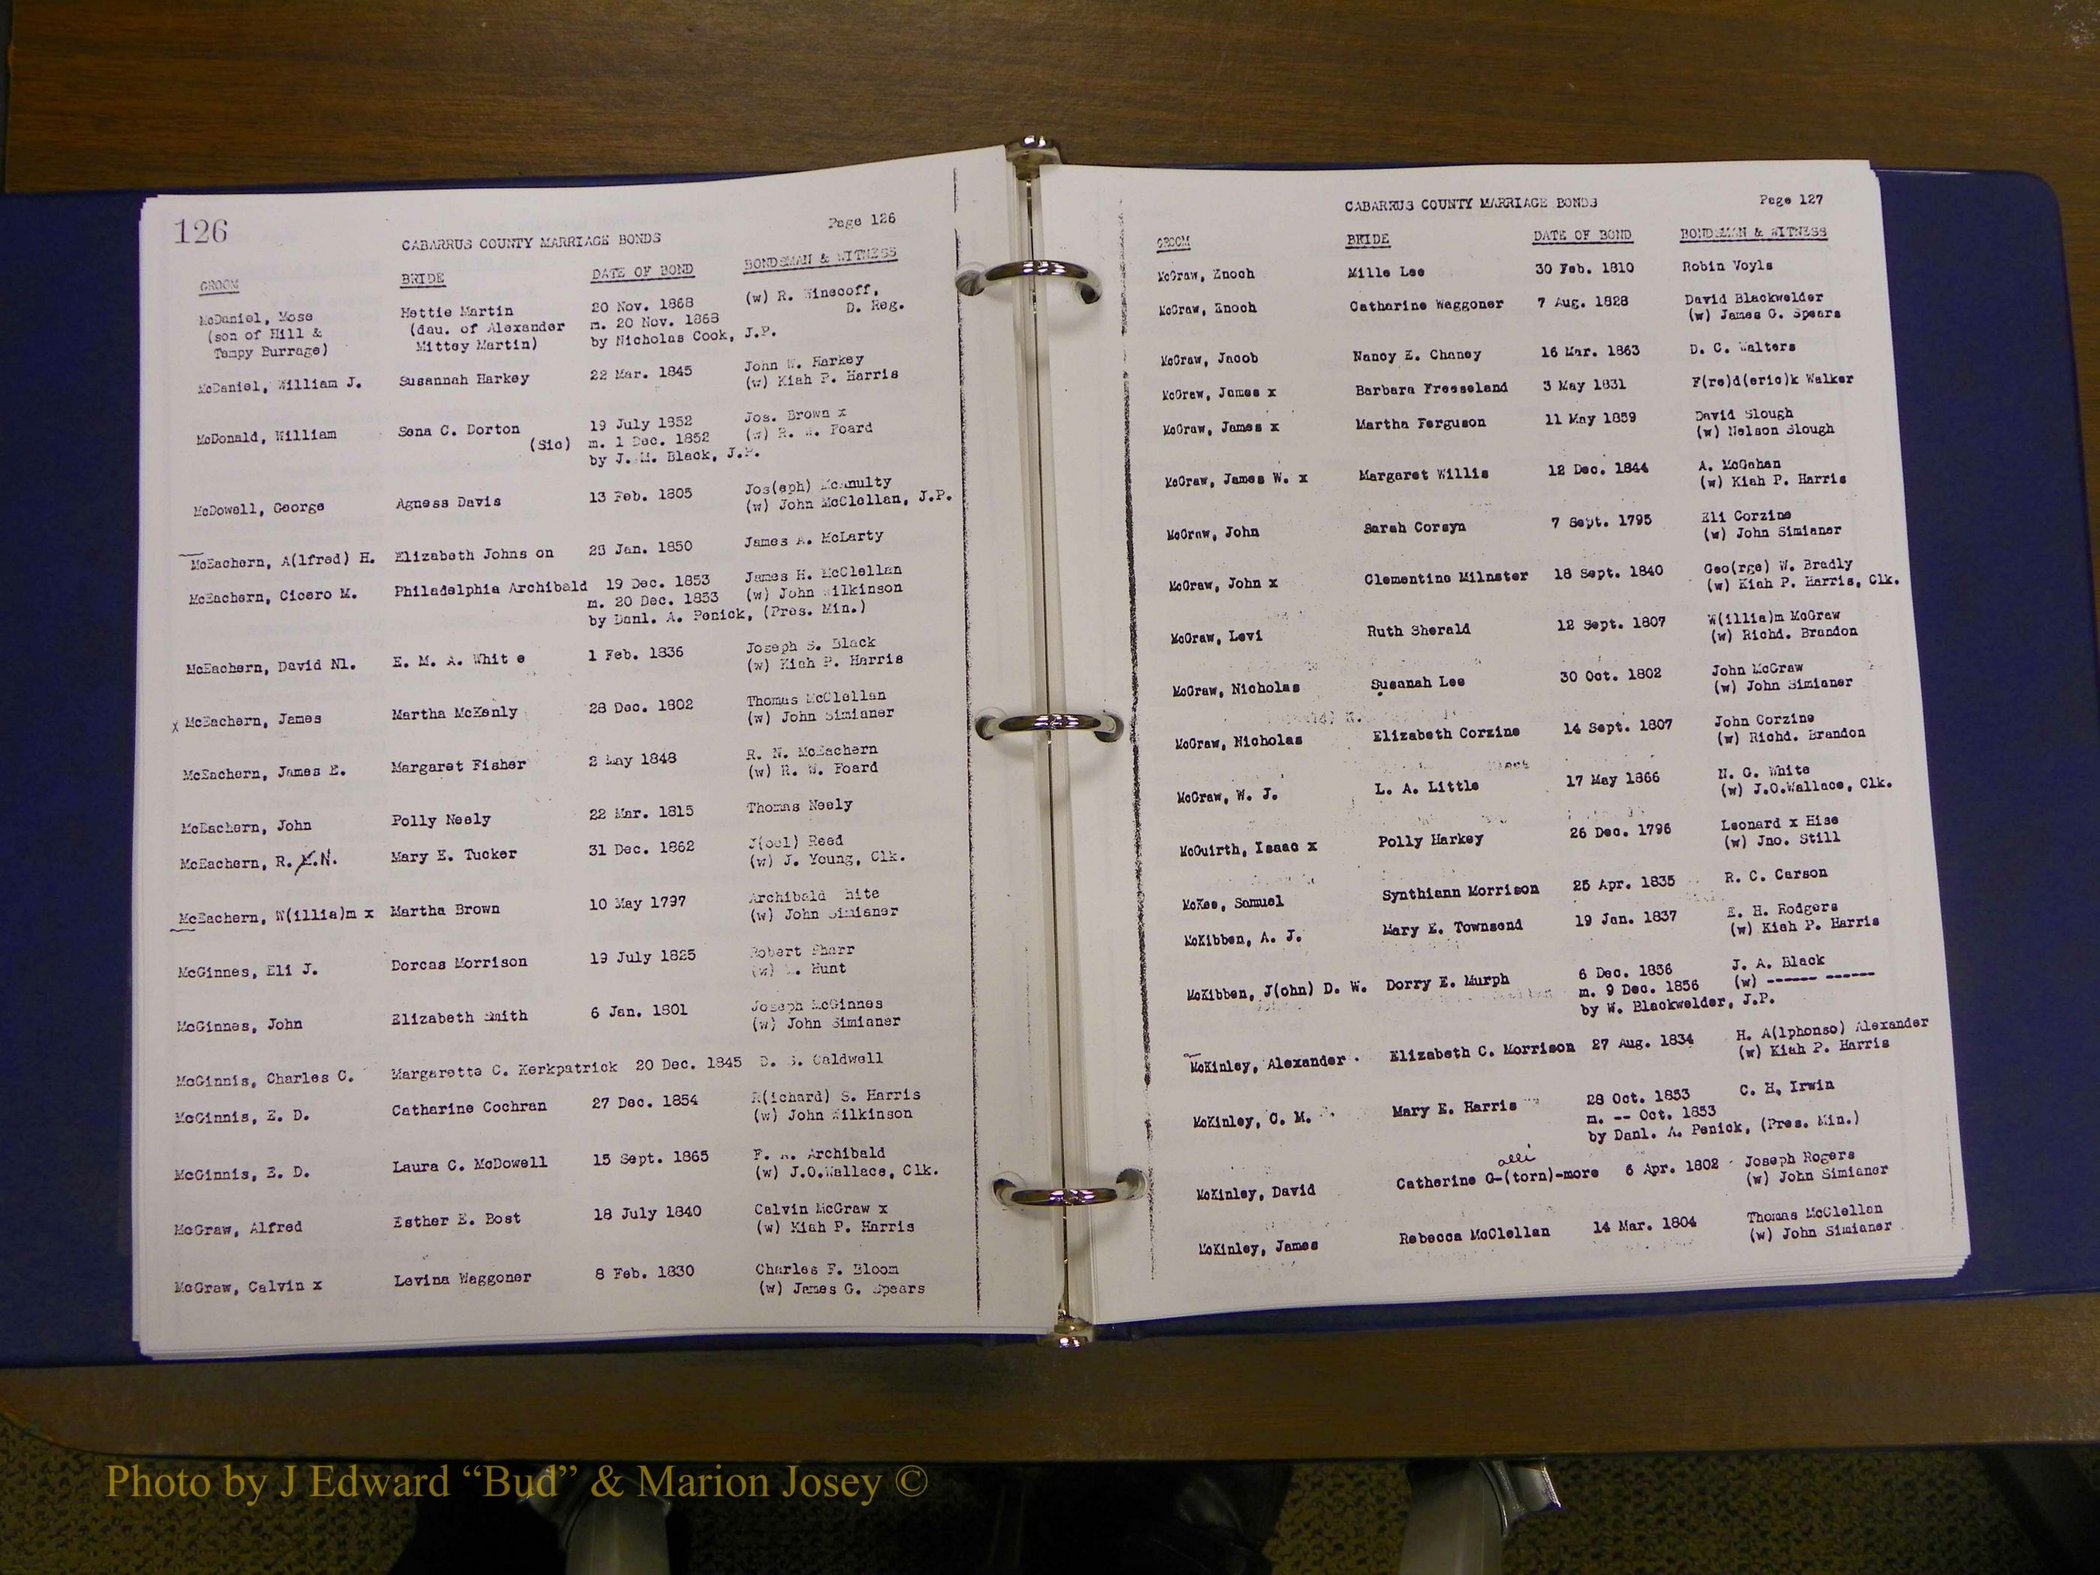 126
Page 126
CABARRUS COUNTY MARRIAGE BONDS
GROOM BRIDE DATE OF BOND BONDSMAN & WITNESS
McDaniel, Mose Hettie Martin 20 Nov. 1868 (w) R. Winecoff,
(son of Hill & (dau. of Alexander m. 20 Nov. 1868 D. Reg.
Tempy Burrage) Mittey Martin) by Nicholas Cook, J.P.
McDaniel, William J. Susannah Harkey 22 Mar. 1845 John W. Harkey
(w) Kiah P. Harris
McDonald, William Sena C. Dorton 19 July 1852 Jos. Brown x
(Sic) m. 1 Dec. 1852 (w) R. W. Foard
by J. M. Black, J.P.
McDowell, George Agness Davis 13 Feb. 1805 Jos(eph) McAnulty
(w) John McClellan, J.P.
McEachern, A(lfred) H. Elizabeth Johns on 28 Jan. 1850 James A. McLarty
McEachern, Cicero M. Philadelphia Archibald 19 Dec. 1853 James H. McClellan
m. 20 Dec. 1853 (w) John Wilkinson
by Danl. A. Penick, (Pres. Min.)
McEachern, David Nl. E. M. A. Whit e 1 Feb. 1836 Joseph S. Black
(w) Kiah P. Harris
x McEachern, James Martha McKenly 28 Dec. 1802 Thomas McClellan
(w) John Simianer
McEachern, James E. Margaret Fisher 2 May 1848 R. N. McEachern
(w) R. W. Foard
McEachern, John Polly Neely 22 Mar. 1815 Thomas Neely
McEachern, R. N. Mary E. Tucker 31 Dec. 1862 J(oel) Reed
(w) J. Young, Clk.
McEachern, W(illia)m x Martha Brown 10 May 1797 Archibald hite
(w) John Simianer
McGinnes, Eli J. Dorcas Morrison 19 July 1825 Robert Pharr
(w) Hunt
McGinnes, John Elizabeth Smith 6 Jan. 1801 Joseph McGinnes
(w) John Simianer
McGinnis, Charles C. Margarette C. Kerkpatrick 20 Dec. 1845 D. S. Caldwell
McGinnis, E. D. Catharine Cochran 27 Dec. 1854 R(ichard) S. Harris
(w) John Wilkinson
McGinnis, E. D. Laura C. McDowell 15 Sept. 1865 F. A. Archibald
(w) J.O.Wallace, Clk.
McGraw, Alfred Esther E. Bost 18 July 1840 Calvin McGraw x
(w) Kiah P. Harris
McGraw, Calvin x Levina Waggoner 8 Feb. 1830 Charles F. Bloom
(w) James G. Spears
CABARRUS COUNTY MARRIAGE BONDS Page 127
GROOM BRIDE DATE OF BOND BONDSMAN & WITNESS
McGraw, Enoch Mille Lee 30 Feb. 1810 Robin Voyls
McGraw, Enoch Catharine Waggoner 7 Aug. 1828 David Blackwelder
(w) James G. Spears
McGraw, Jacob Nancy E. Chaney 16 Mar. 1863 D. C. Walters
McGraw, James x Barbara Fresseland 3 May 1831 F(re)d(eric)k Walker
McGraw, James x Martha Ferguson 11 May 1859 David Slough
(w) Nelson Slough
McGraw, James W. x Margaret Willis 12 Dec. 1844 A. McGahan
(w) Kiah P. Harris
McGraw, John Sarah Corsyn 7 Sept. 1795 Eli Corzine
(w) John Simianer
McGraw, John x Clementine Milnster 18 Sept. 1840 Geo(rge) W. Bradly
(w) Kiah P. Harris, Clk.
McGraw, Levi Ruth Sherald 12 Sept. 1807 W(illia)m McGraw
(w) Richd. Brandon
McGraw, Nicholas Susanah Lee 30 Oct. 1802 John McGraw
(w) John Simianer
McGraw, Nicholas Elizabeth Corzine 14 Sept. 1807 John Corzine
(w) Richd. Brandon
McGraw, W. J. L. A. Little 17 May 1866 N. C. White
(w) J.O.Wallace, Clk.
McGuirth, Isaac x Polly Harkey 26 Dec. 1796 Leonard x Hise
(w) Jno. Still
McKee, Samuel Synthiann Morrison 25 Apr. 1835 R. C. Carson
McKibben, A. J. Mary E. Townsend 19 Jan. 1837 E. H. Rodgers
(w) Kiah P. Harris
McKibben, J(ohn) D. W. Dorry E. Murph 6 Dec. 1856 J. A. Black
m. 9 Dec. 1856 (w) ------ ------
by W. Blackwelder, J.P.
McKinley, Alexander Elizabeth C. Morrison 27 Aug. 1834 H. A(lphonso) Alexander
(w) Kiah P. Harris
McKinley, C. M. Mary E. Harris 28 Oct. 1853 C. H. Irwin
m. -- Oct. 1853
by Danl. A. Penick, (Pres. Min.)
alli
McKinley, David Catherine G-(torn)-more 6 Apr. 1802 Joseph Rogers
(w) John Simianer
McKinley, James Rebecca McClellan 14 Mar. 1804 Thomas McClellan
(w) John Simianer
Photo by J Edward “Bud” & Marion Josey ©